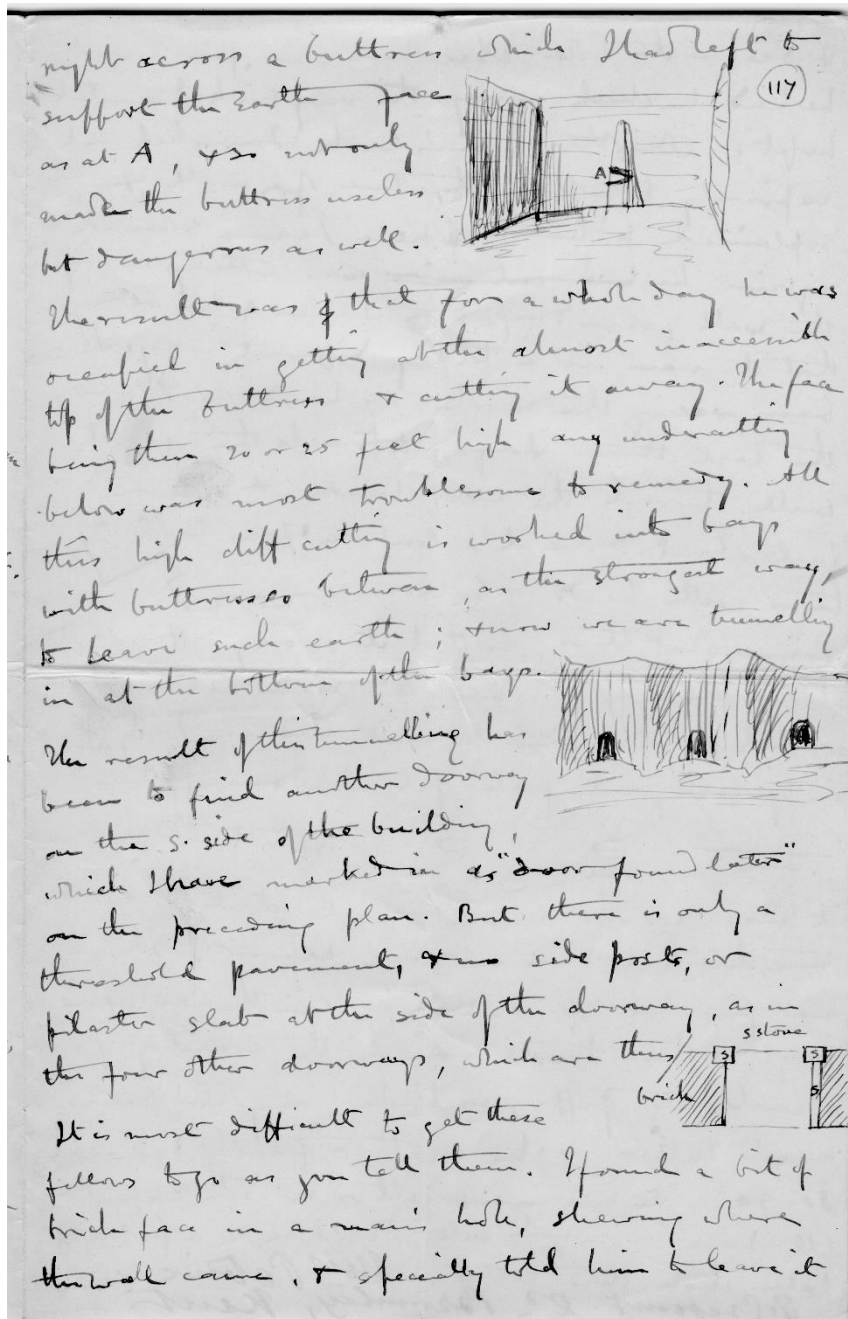 right across a buttress which I had left to
117
support the earth face
as at A, & so not only
A
made the buttress useless
but dangerous as well.
The result was that for a whole day he was
occupied in getting at the almost inaccessible
top of the buttress & cutting it away. The face
being then 20 or 25 feet high any undercutting
below was most troublesome to remedy. All
this high cliff cutting is worked into bays
with buttresses between, as the strongest way,
to leave such earth; & now we are tunnelling
in at the bottom of the bays.
The result of this tunnelling has
been to find another doorway
on the S. side of the building,
which I have marked in as "door found later"
on the preceding plan. But there is only a
threshold pavement, & no side posts, or
pilaster slab at the side of the doorway, as in
s stone
the four other doorways, which are thus
S S
brick
S
It is most difficult to get these
fellows to go as you tell them. I found a bit of
brick face in a man's hole, shewing where
the wall came, & specially told him to leave it